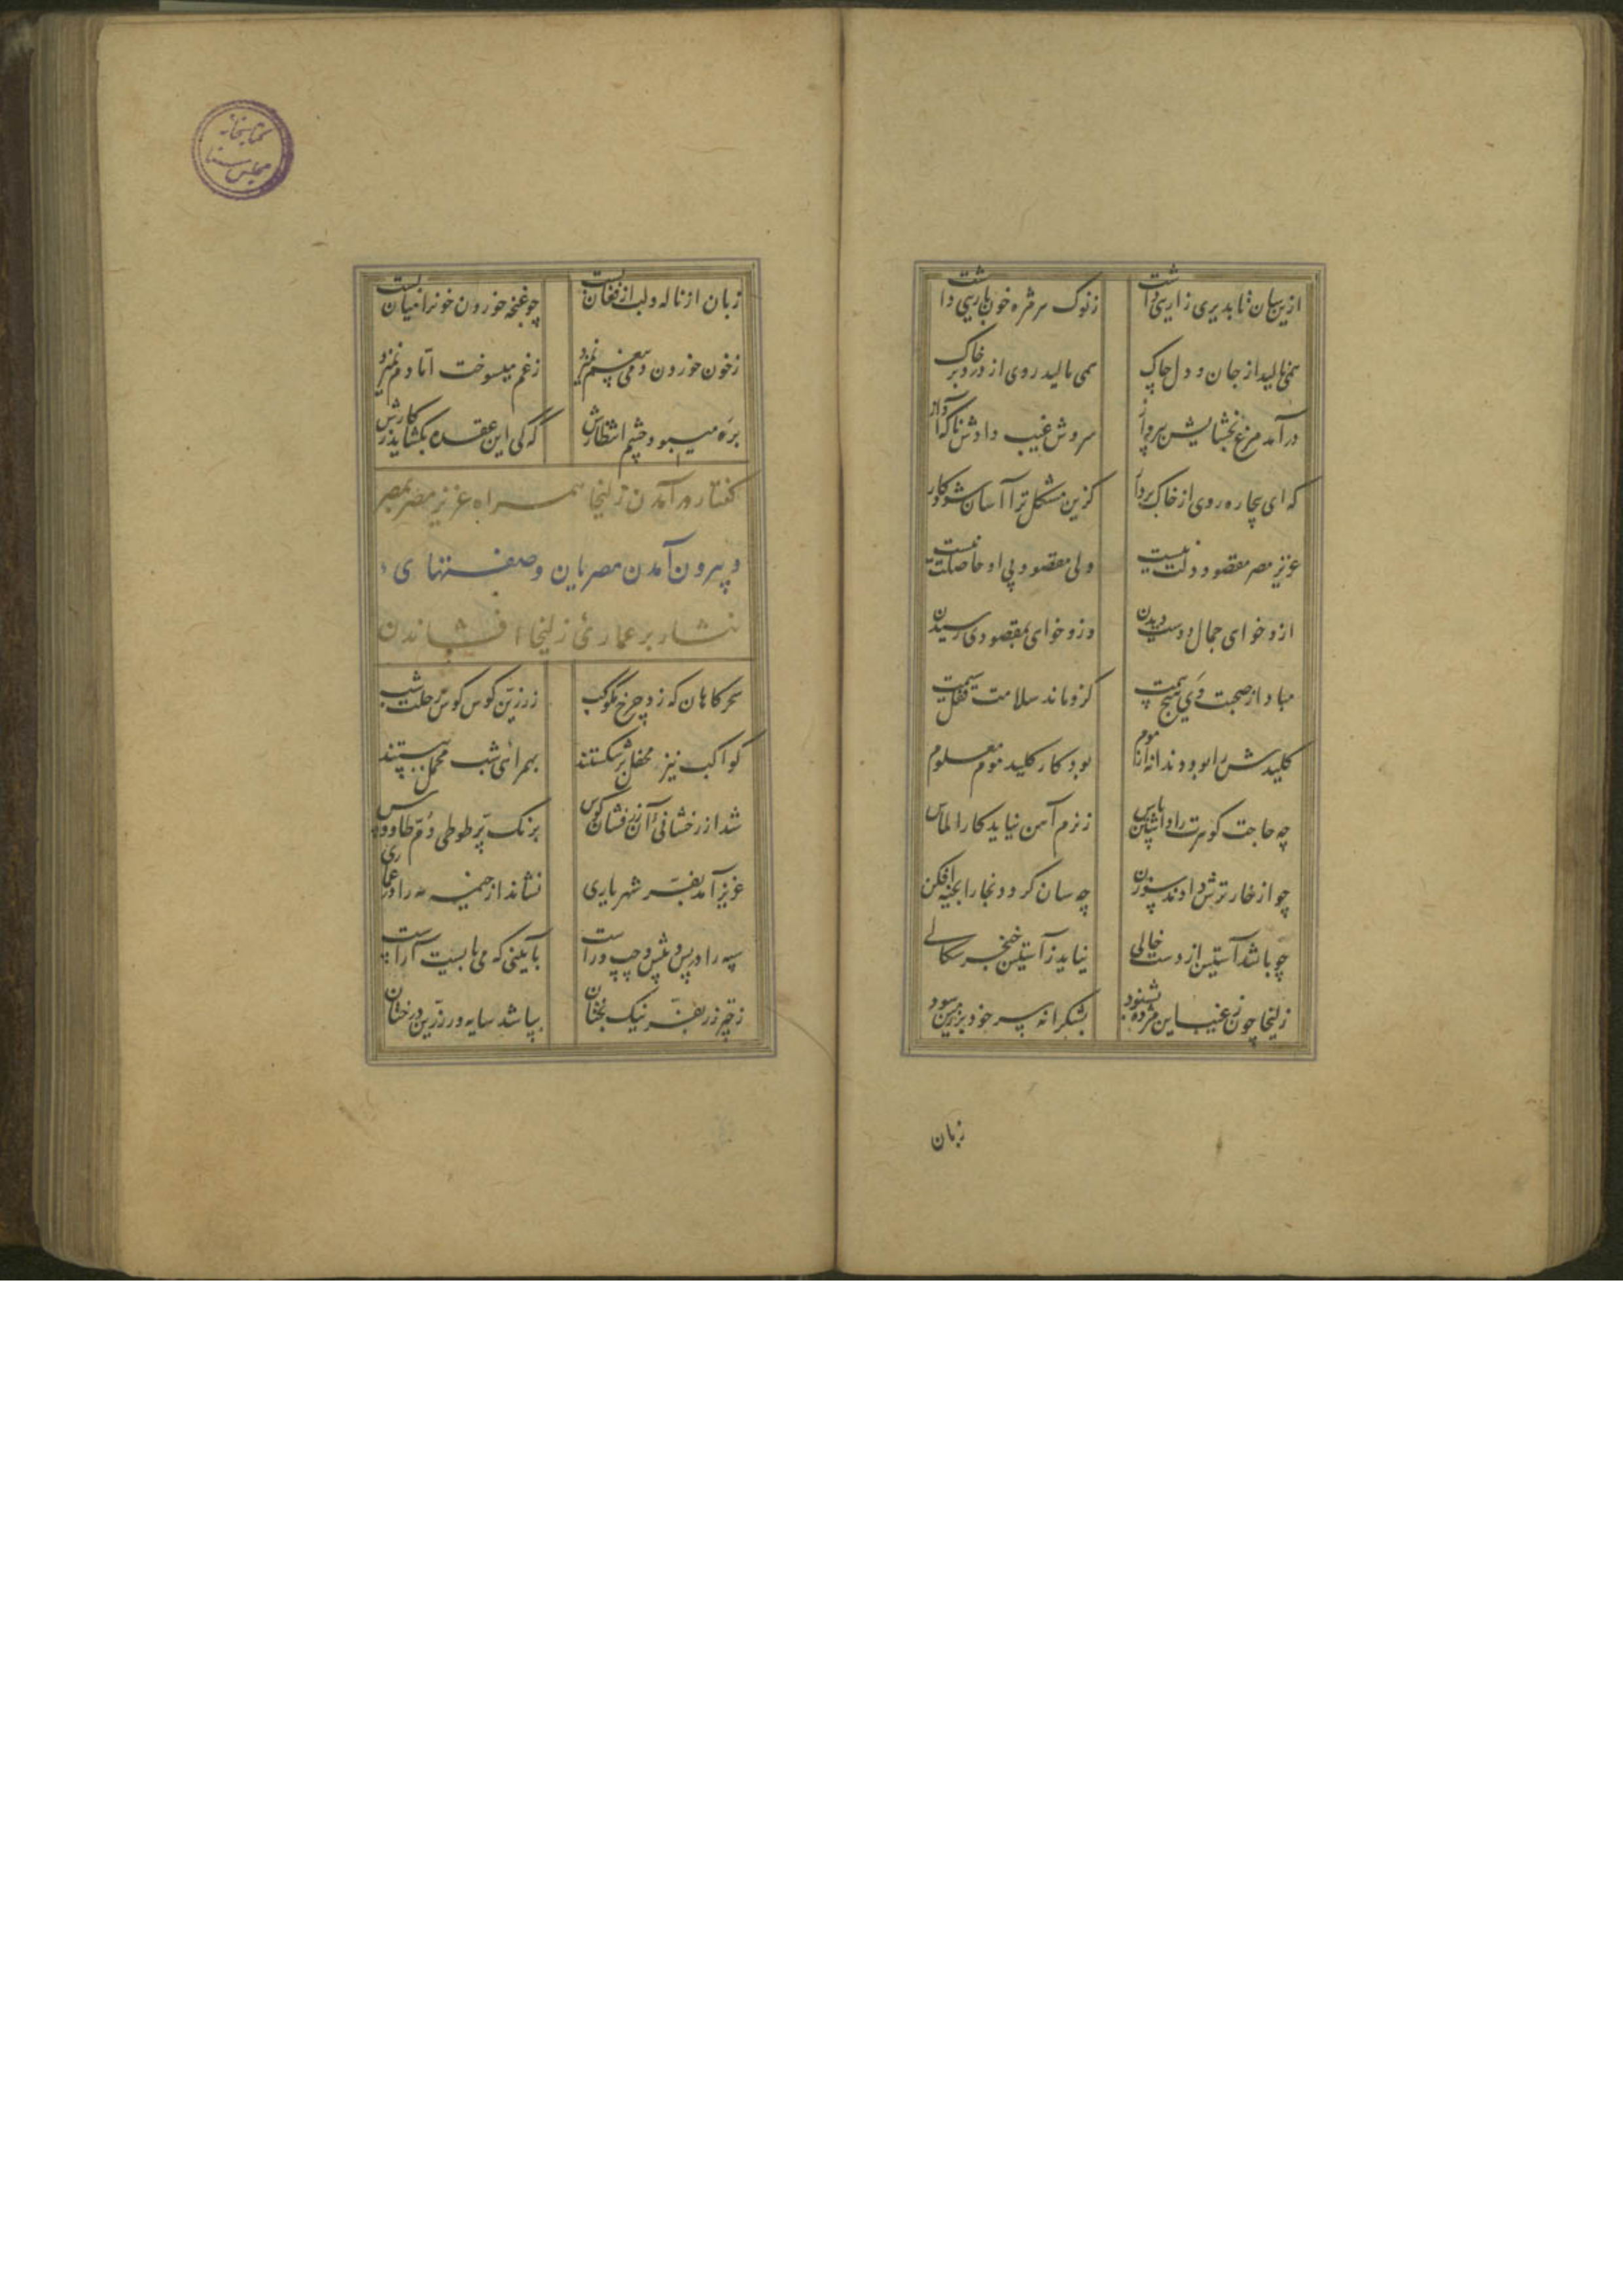 ازین سان تا بدیری زاریی داشت
ز نوک هر مژه خون باریی داشت
همی نالید از جان و دل چاک
همی مالید روی از درد بر خاک
درآمد مرغ بخشایش به پرواز
سروش غیب دادش ناگه آواز
که ای بیچاره روی از خاک بردار
کزین مشکل ترا آسان شود کار
عزیز مصر مقصود دلت نیست
ولی مقصود بی او حاصلت نیست
ازو خواهی جمال دوست دیدن
وزو خواهی بمقصودی رسیدن
مباد از صحبت وی هیچ بیمت
کزو ماند سلامت قفل سیمت
کلیدش را بود دندانه از موم
بود کار کلید موم معلوم
چه حاجت گوهرت را داشتن پاس
ز نرم آهن نیاید کار الماس
چو از خار ترش دادند سوزن
چه سان گردد بخارا بخیه افکن
چو باشد آستین از دست خالی
نیاید ز آستین خنجر سکالی
زلیخا چون ز غیب این مژده بشنود
بشکرانه سر خود بر زمین سود
زبان
زبان از ناله و لب از فغان بست
چو غنچه خوردن خونرا میان بست
ز خون خوردن دمی بی غم نمیزد
ز غم میسوخت اما دم نمیزد
بره میبود چشم انتظارش
که کی این عقده بگشاید ز کارش
گفتار در آمدن زلیخا همراه عزیز مصر بمصر
و بیرون آمدن مصریان و طبقهای
نثار بر عماری زلیخا افشاندن
سحرگاهان که زد چرخ مکوکب
ز زرین کوس کوس رحلت شب
کواکب نیز محفل برشکستند
بهمراهی شب محمل ببستند
شد از رخشانی آن زرفشان کوس
برنگ پر طوطی دم طاووس
عزیز آمد بفر شهریاری
نشاند از خیمه مه را در عماری
سپه را در پس و پیش و چپ و راست
بآیینی که می بایست آراست
ز چتر زر بفر نیک بختان
بپا شد سایه ور زرین درختان
کتابخانه
مجلس سنا